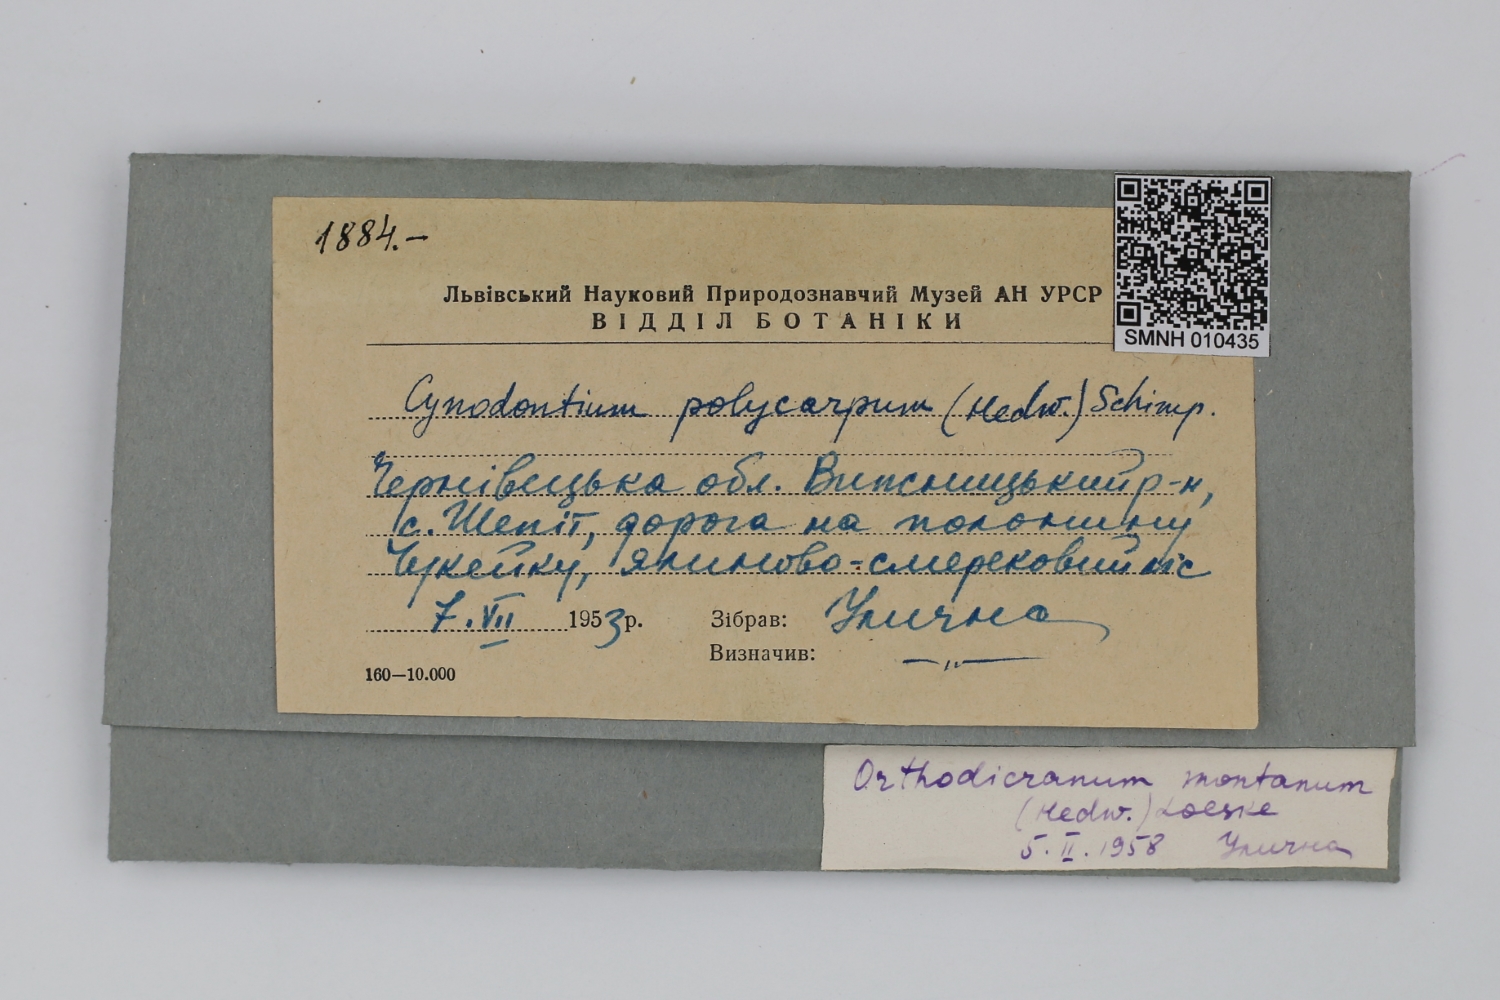 1884.—
Львівський Науковий Природознавчий Музей АН УРСР
ВІДДІЛ БОТАНІКИ
SMNH 010435
Cynodontium polycarpum (Hedw.) Schimp.
Чернівецька обл. Вижницький р-н,
с. Шепіт, дорога на полонину
Чукейку, ялиново-смерековий ліс
7.VII 1953р. Зібрав: Улична
Визначив: —"—
160—10.000
Orthodicranum montanum
(Hedw.) Loeske
5.II.1958 Улична